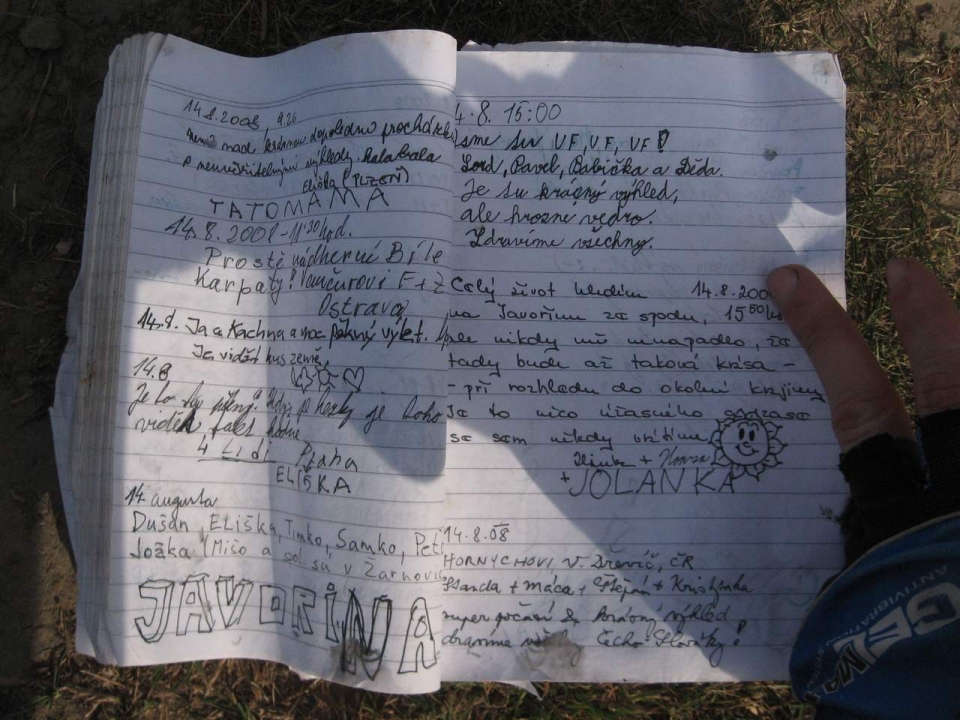 14.8.2008 9.26
nad dopoledne procházka
s výhledy. halabala
Eliška (PLZEŇ)
TATOMAMA
14.8.2008 - 11:30 hod.
Prostě nádherné Bílé
Karpaty! Vančurovi F+Ž
Ostrava
14.8. Ja a Kachna a moc pěkný výlet.
Je vidět kus země.
14.8
Je to
vidět fakt hodně
4 Lidi Praha
ELIŠKA
14. augusta
Dušan, ELiška, Timko, Samko, Peti
Jožka, Mišo a sú v Žarnovic
JAVORINA
4.8. 15:00
sme su UF, UF, UF!
Lord, Pavel, Babička a Děda.
Je su krásný výhled,
ale hrozne vedro.
Zdravíme všechny.
Celý život hledím 14.8.200
na Javořinu ze spodu, 15 50
ale nikdy mě nenapadlo, že
tady bude až taková krása -
- při rozhledu do okolní krajiny
Je to něco úžasného
se sem někdy vrátíme
+ Honza
+ JOLANKA
14.8.08
HORNYCHOVI V. Dřevíč, ČR
Standa + Máca + Štěpán + Kristýnka
super počasí & krásný výhled
Čecho Slováky!
GEL
ANTIVIBRATION